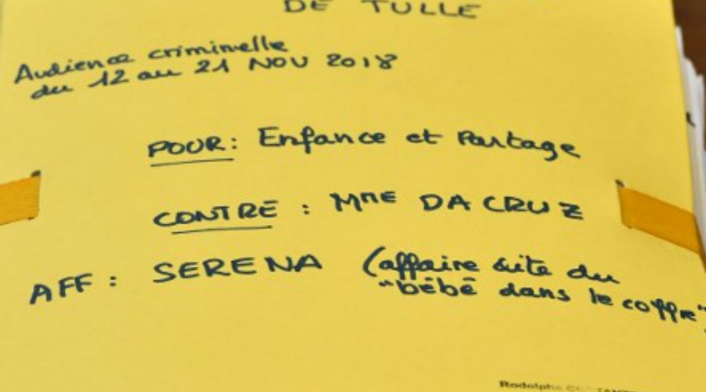 DE TULLE
Audience criminelle
du 12 au 21 NOV 2018
POUR : Enfance et Partage
CONTRE : Mme DA CRUZ
AFF : SERENA (affaire dite du
"bébé dans le coffre"